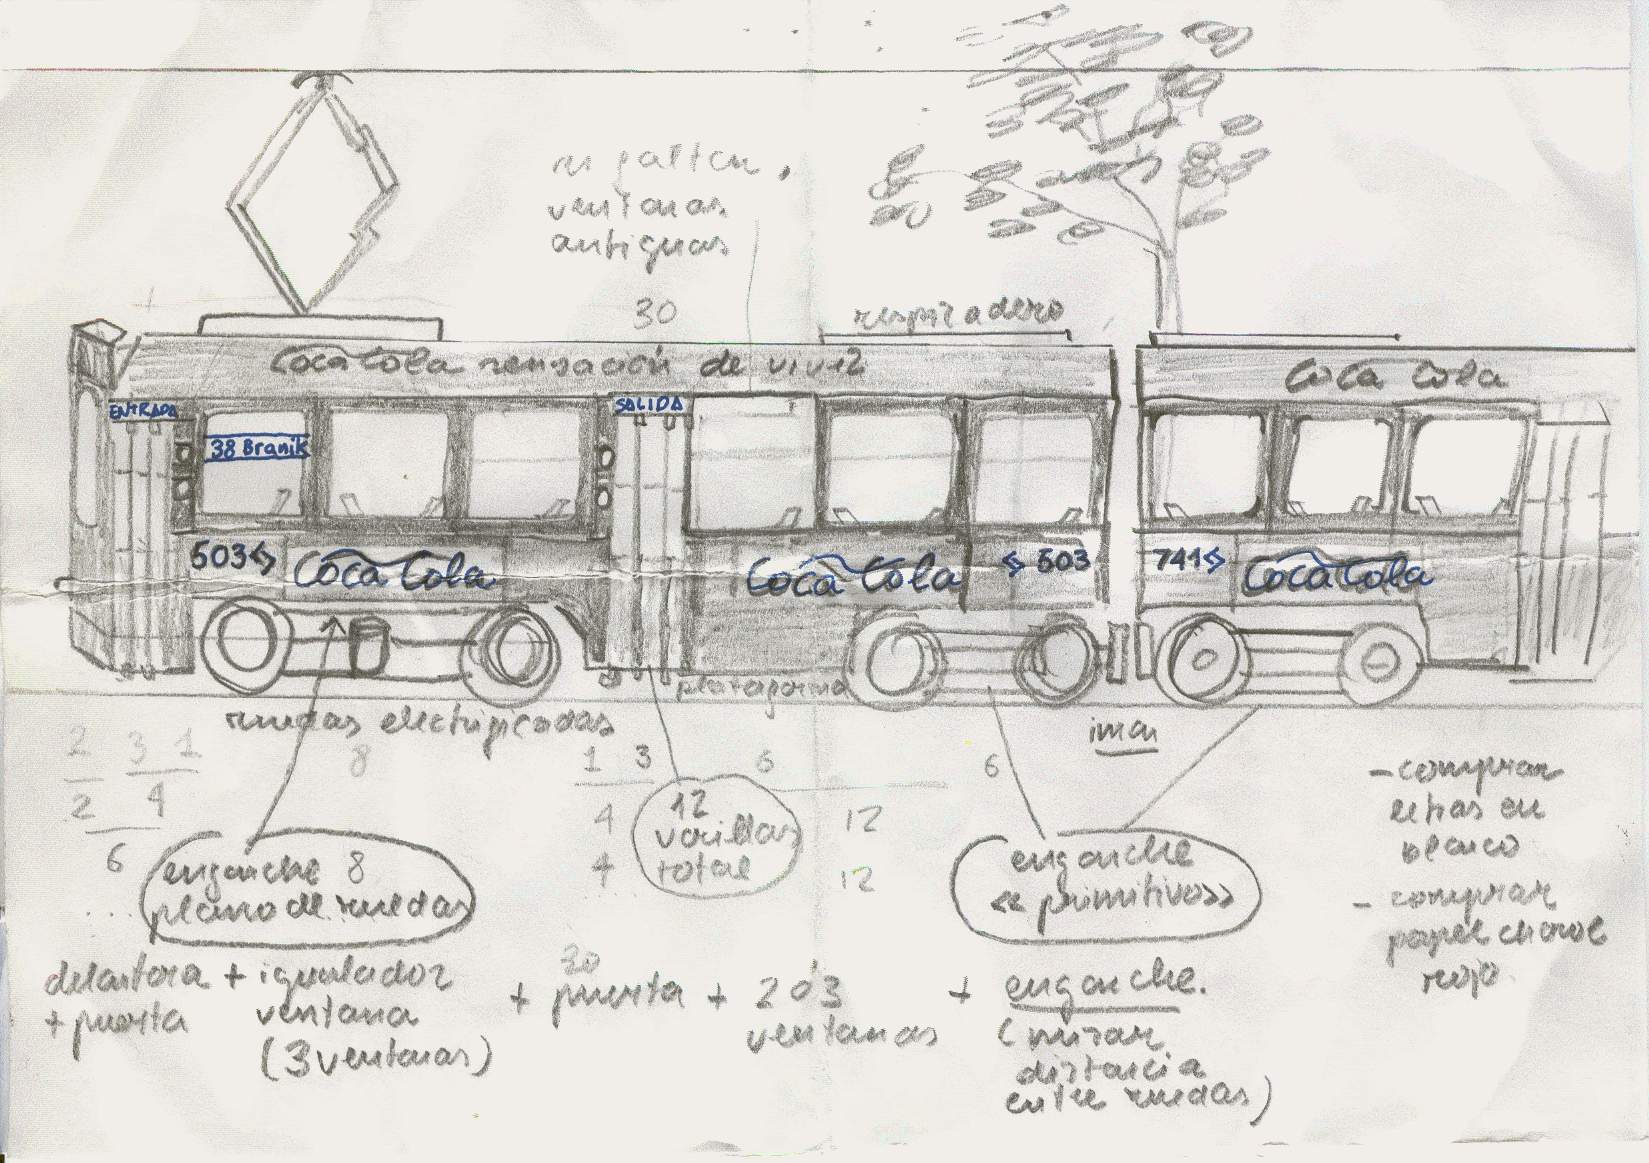 si faltan,
ventanas
antiguas
30
respiradero
Coca Cola sensación de vivir
Coca Cola
ENTRADA
SALIDA
38 Branik
503
Coca Cola
Coca Cola
503
741
Coca Cola
plataforma
ruedas electrificadas
iman
2 3 1
8
1 3
6
6
2 4
6
4
12
4
12
12
varillas
total
enganche 8
plano de ruedas
enganche
<< primitivo>>
- comprar
letras en
blanco
- comprar
papel charol
rojo.
delantera + igualador
+ puerta
ventana
(3 ventanas)
30
+ puerta + 2 ó 3
ventanas
+ enganche.
(mirar
distancia
entre ruedas)